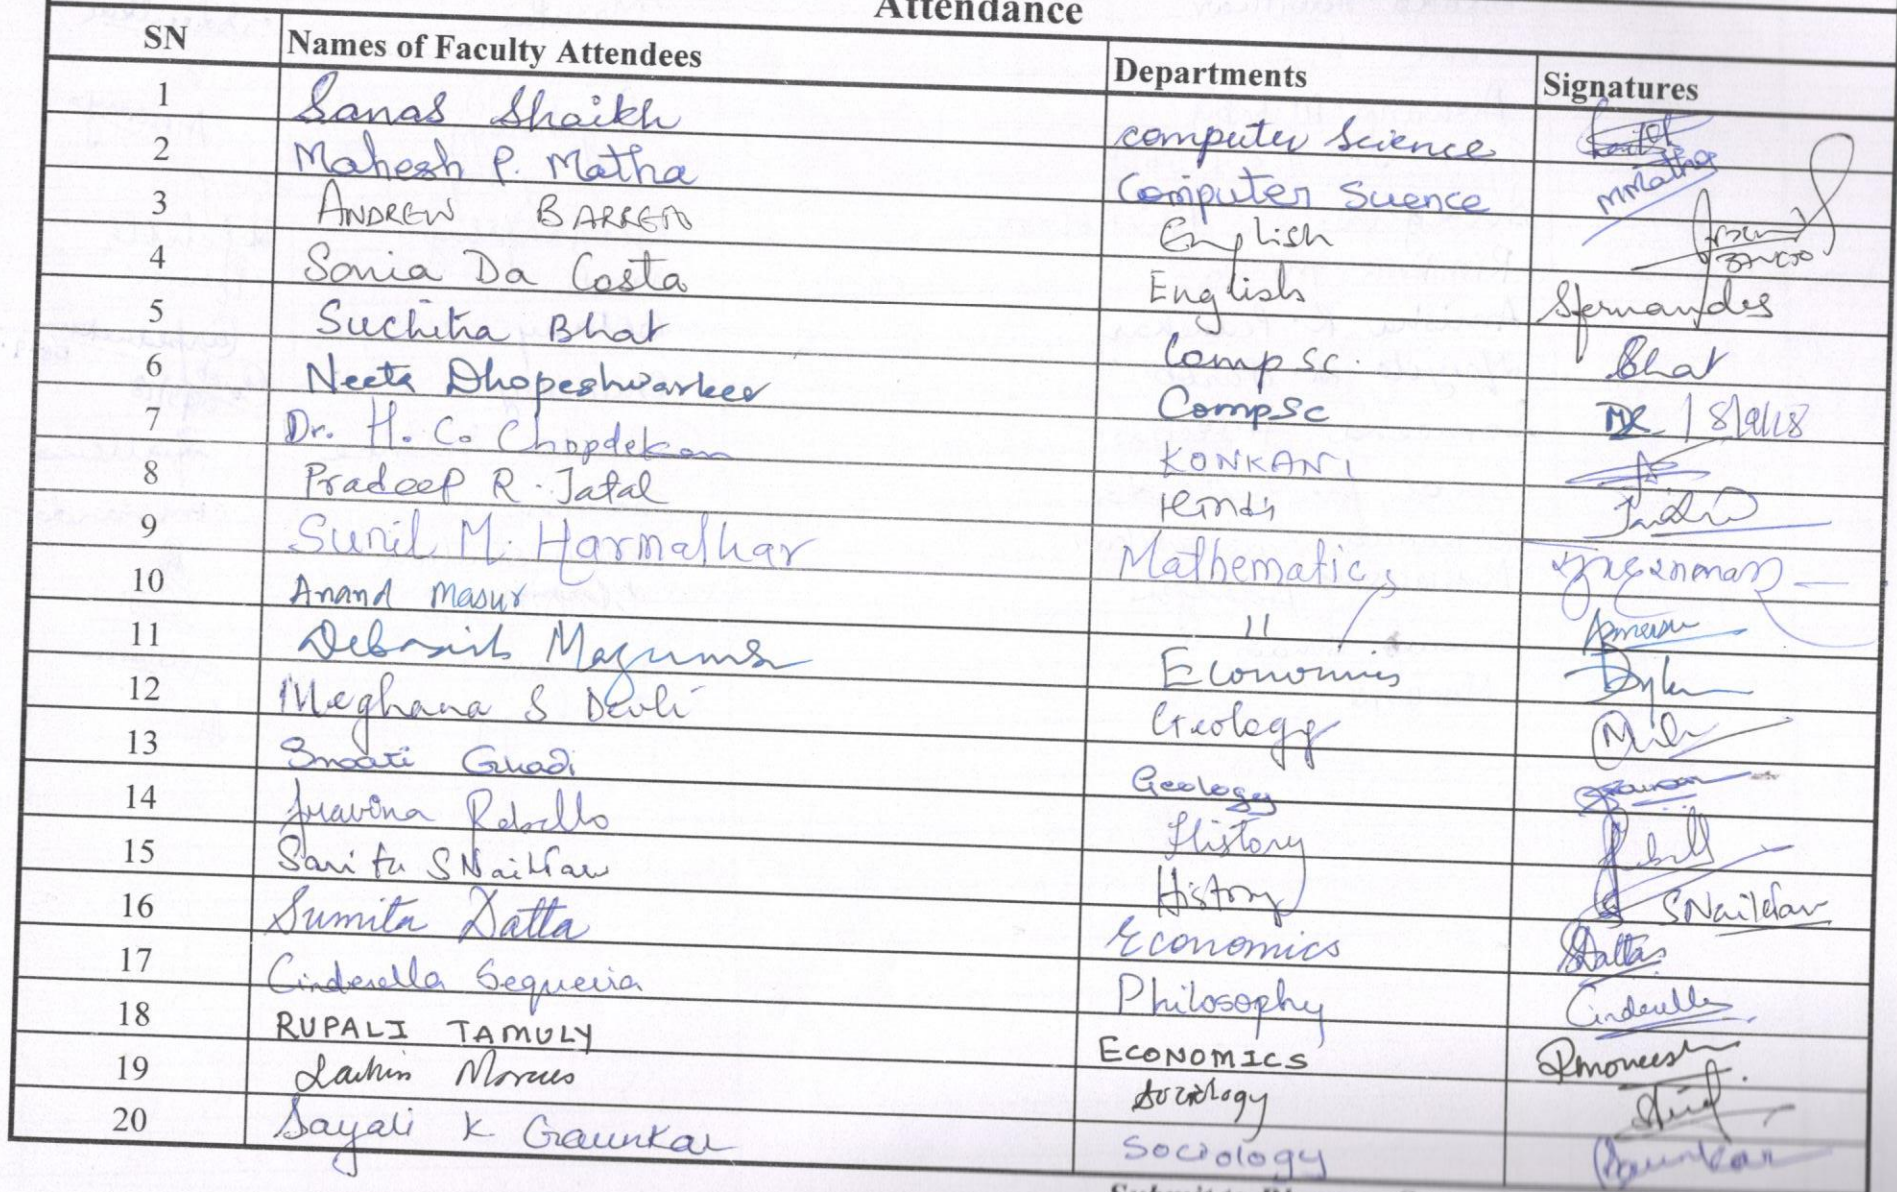 Attendance
SN Names of Faculty Attendees Departments Signatures
1 Sanas Shaikh computer Science
2 Mahesh P. Matha Computer Suence MMatha
3 ANDREW BARRETO English
4 Sonia Da Costa English Sfernandes
5 Suchitra Bhat Comp sc. Bhat
6 Neeta Dhopeshwarkar CompSc 18/9/18
7 Dr. H. C. Chopdekar KONKANI
8 Pradeep R. Jatal Hindi
9 Sunil M. Harmalkar Mathematics
10 Anand Masur 11
11 Debasish Mazumdar Economics
12 Meghana S Devli Geology
13 Swati Guadi Geology
14 Juavina Rebello History Rebello
15 Sarita S Naikar History SNaikar
16 Sumita Datta Economics SDatta
17 Cinderella Sequeira Philosophy Cinderella
18 RUPALI TAMULY ECONOMICS
19 Moraes Sociology
20 Sayali K Gaunkar Sociology Gaunkar